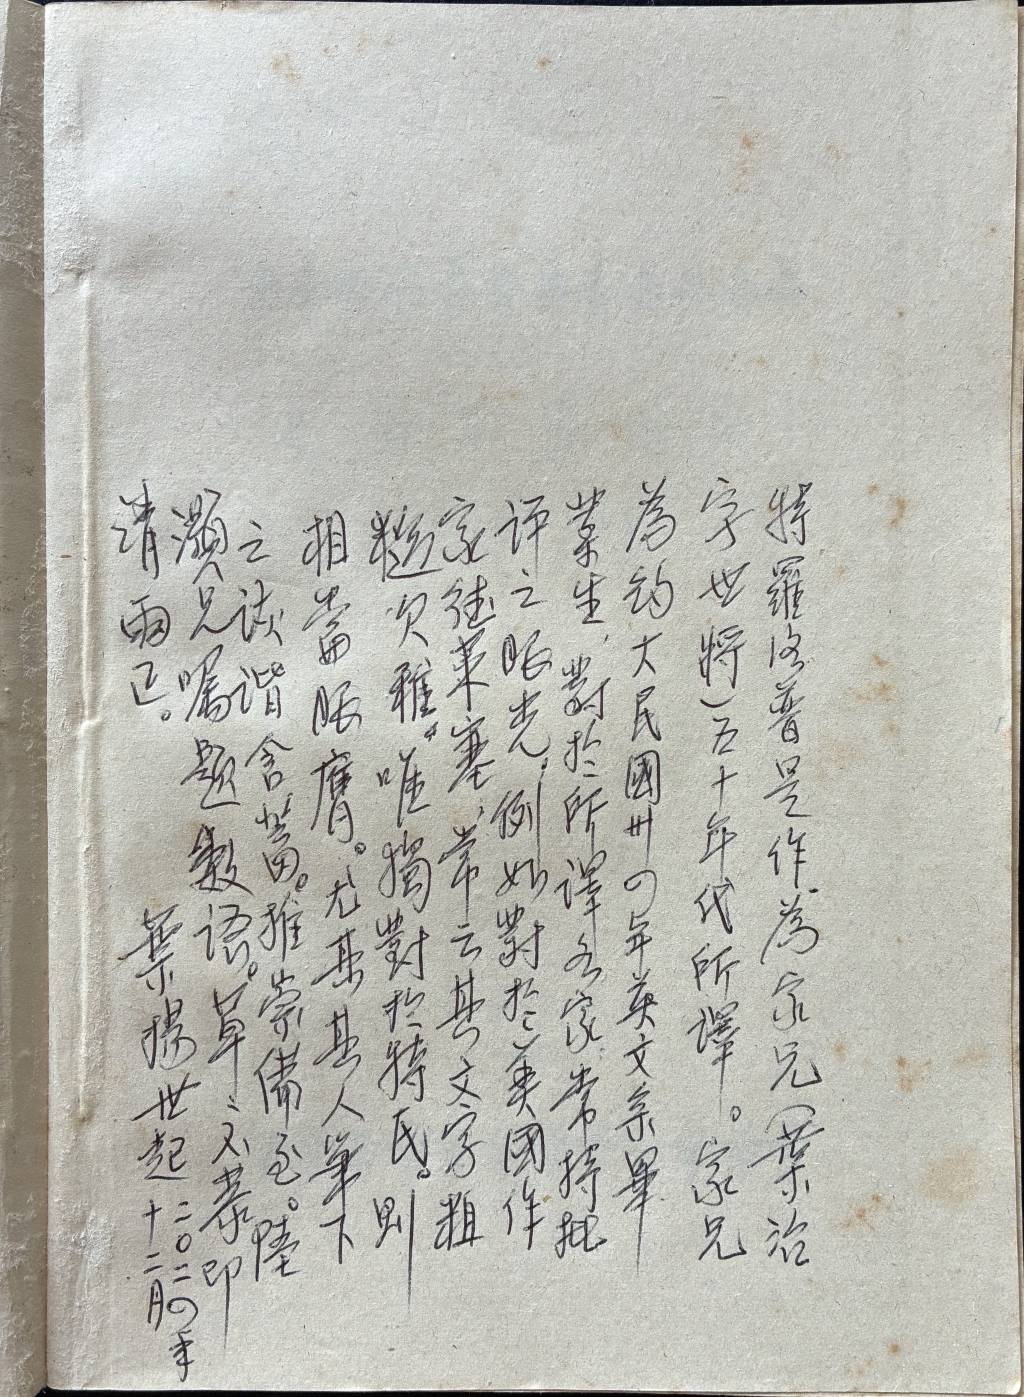 特羅洛普是作為家兄（葉治
字世將）五十年代所譯。家兄
為約大民國卅四年英文系畢
業生，對於所譯名家，常持批
評之眼光，例如對於美國作
家德萊塞，常云其文字粗
糙欠雅。唯獨對於特氏。則
相當服膺。尤其其人筆下
之詼諧含蓄。推崇備至。陸
灝兄囑題數語。草草不恭即
請兩正。
葉揚世起 二〇二四年
十二月